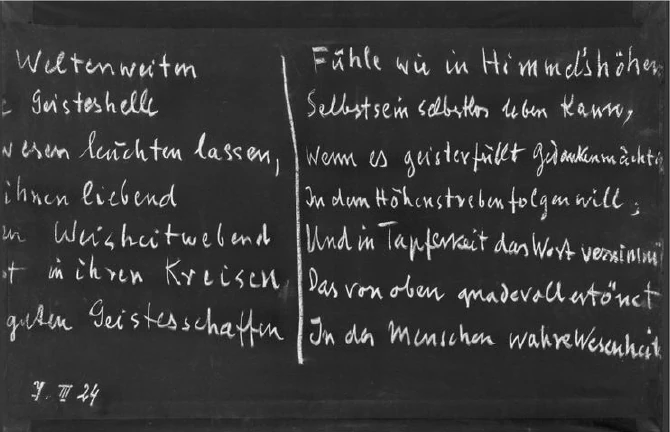 Weltenweiten
Geisteshelle
esen leuchten lassen,
ihnen liebend
Weisheitwebend
t in ihren Kreisen
guten Geistesschaffen
7. III 24
Fühle wie in Himmelshöhen
Selbstsein selbstlos leben kann,
Wenn es geisterfüllt Gedankenmächte
In dem Höhenstreben folgen will;
Und in Tapferkeit das Wort vernimmt
Das von oben gnadevoll ertönet
In der Menschen wahre Wesenheit